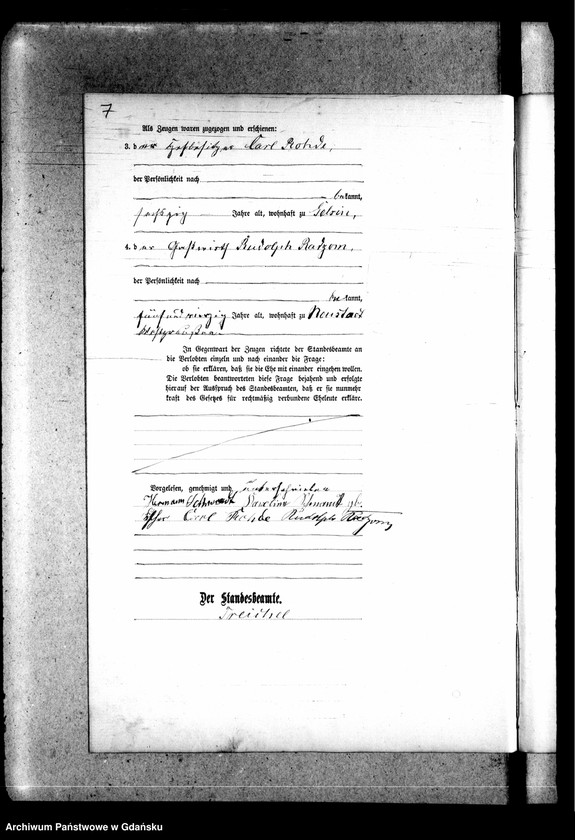 7
Als Zeugen waren zugezogen und erschienen:
3. der Hofbesitzer Carl Rohde,
der Persönlichkeit nach
bekannt,
sechszig Jahre alt, wohnhaft zu
4. der Gastwirth Rudolph Radzom,
der Persönlichkeit nach
bekannt,
fünfundvierzig Jahre alt, wohnhaft zu Neustadt
Westpreußen.
In Gegenwart der Zeugen richtete der Standesbeamte an
die Verlobten einzeln und nach einander die Frage:
ob sie erklären, daß sie die Ehe mit einander eingehen wollen.
Die Verlobten beantworteten diese Frage bejahend und erfolgte
hierauf der Ausspruch des Standesbeamten, daß er sie nunmehr
kraft des Gesetzes für rechtmäßig verbundene Eheleute erkläre.
Vorgelesen, genehmigt und unterschrieben
Hermann Karoline gb.
Carl Rohde Rudolph Radzom
Der Standesbeamte.
Treichel
Archiwum Państwowe w Gdańsku